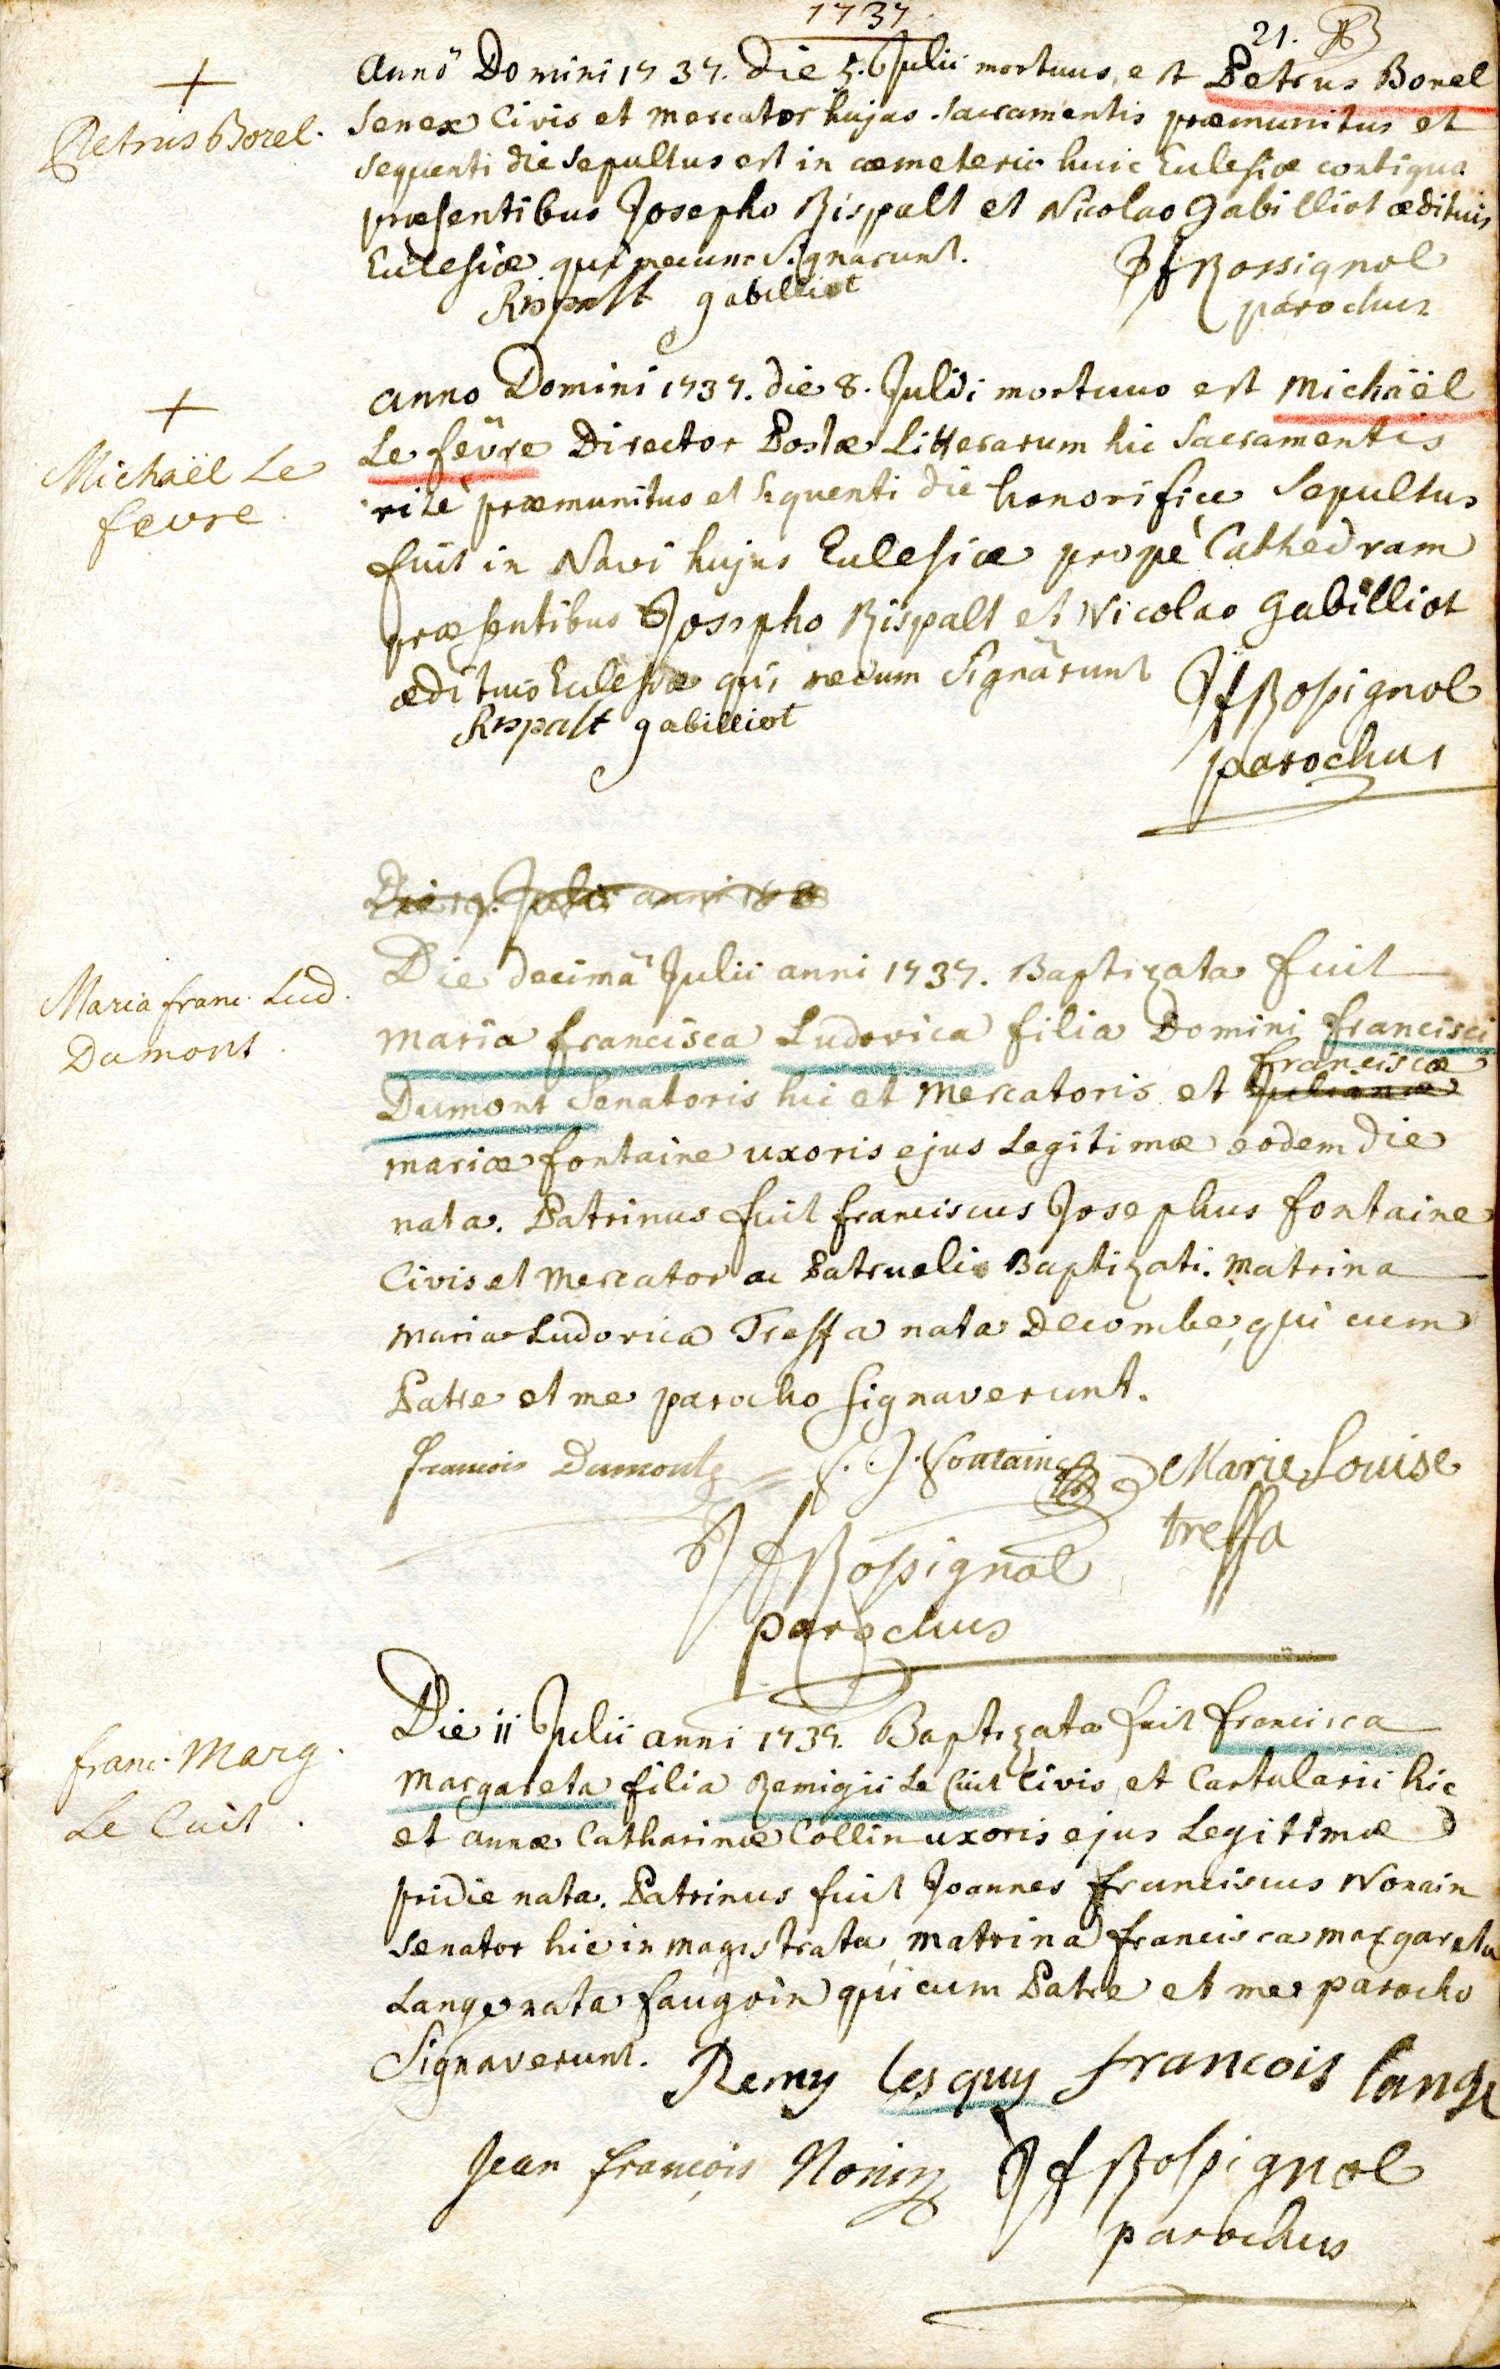 1737.
21.
Petrus Borel.
Anno Domini 1737. die 5. Julii mortuus est Petrus Borel
senex Civis et mercator hujas. sacramentis præmunitus et
sequenti die sepultus est in cæmeterio huic Eclesiæ contiguo
præsentibus Josepho Rispalt et Nicolao Gabilliot ædituis
Eclesiæ qui mecum signarunt. JfRossignol
Rispalt gabilliot parochus
Michaël Le
fevre
anno Domini 1737. die 8. Julii mortuus est Michaël
Le fevre Director Postæ Litterarum hic Sacramentis
ritè præmunitus et sequenti die honorifice sepultus
fuit in Navi hujus Eclesiæ propè Cathedram
præsentibus Josepho Rispalt et Nicolao Gabilliot
ædituis Eclesiæ qui mecum signarunt JfRossignol
Rispalt gabilliot parochus
Die Julii anni
Maria franc. Lud.
Dumont.
Die decimâ Julii anni 1737. Baptizata fuit
maria francisca Ludovica filia Domini francisci
franciscæ
Dumont Senatoris hic et Mercatoris et Julianæ
mariæ fontaine uxoris ejus Legitimæ eodem die
nata. Patrinus fuit franciscus Josephus fontaine
Civis et Mercator ac Patruelis Baptizati. Matrina
Maria Ludovica Treffa nata Decombe, qui cum
Patre et me parocho signaverunt.
francois Dumont f. J. Fontaine Marie Louise
treffa
JfRossignol
parochus
franc. Marg.
Le Cuit.
Die 11 Julii anni 1737. Baptizata fuit francisca
Margareta filia Remigii Le Cuit Civis et Cartularii hic
et annæ Catharinæ Collin uxoris ejus Legitimæ
pridie nata. Patrinus fuit Joannes franciscus Nonain
senator hic in magistratu, matrina francisca margareta
Lange nata faugoin qui cum Patre et me parocho
Signaverunt. Remy lesquy francois lange
Jean françois Nonin JfRossignol
parochus